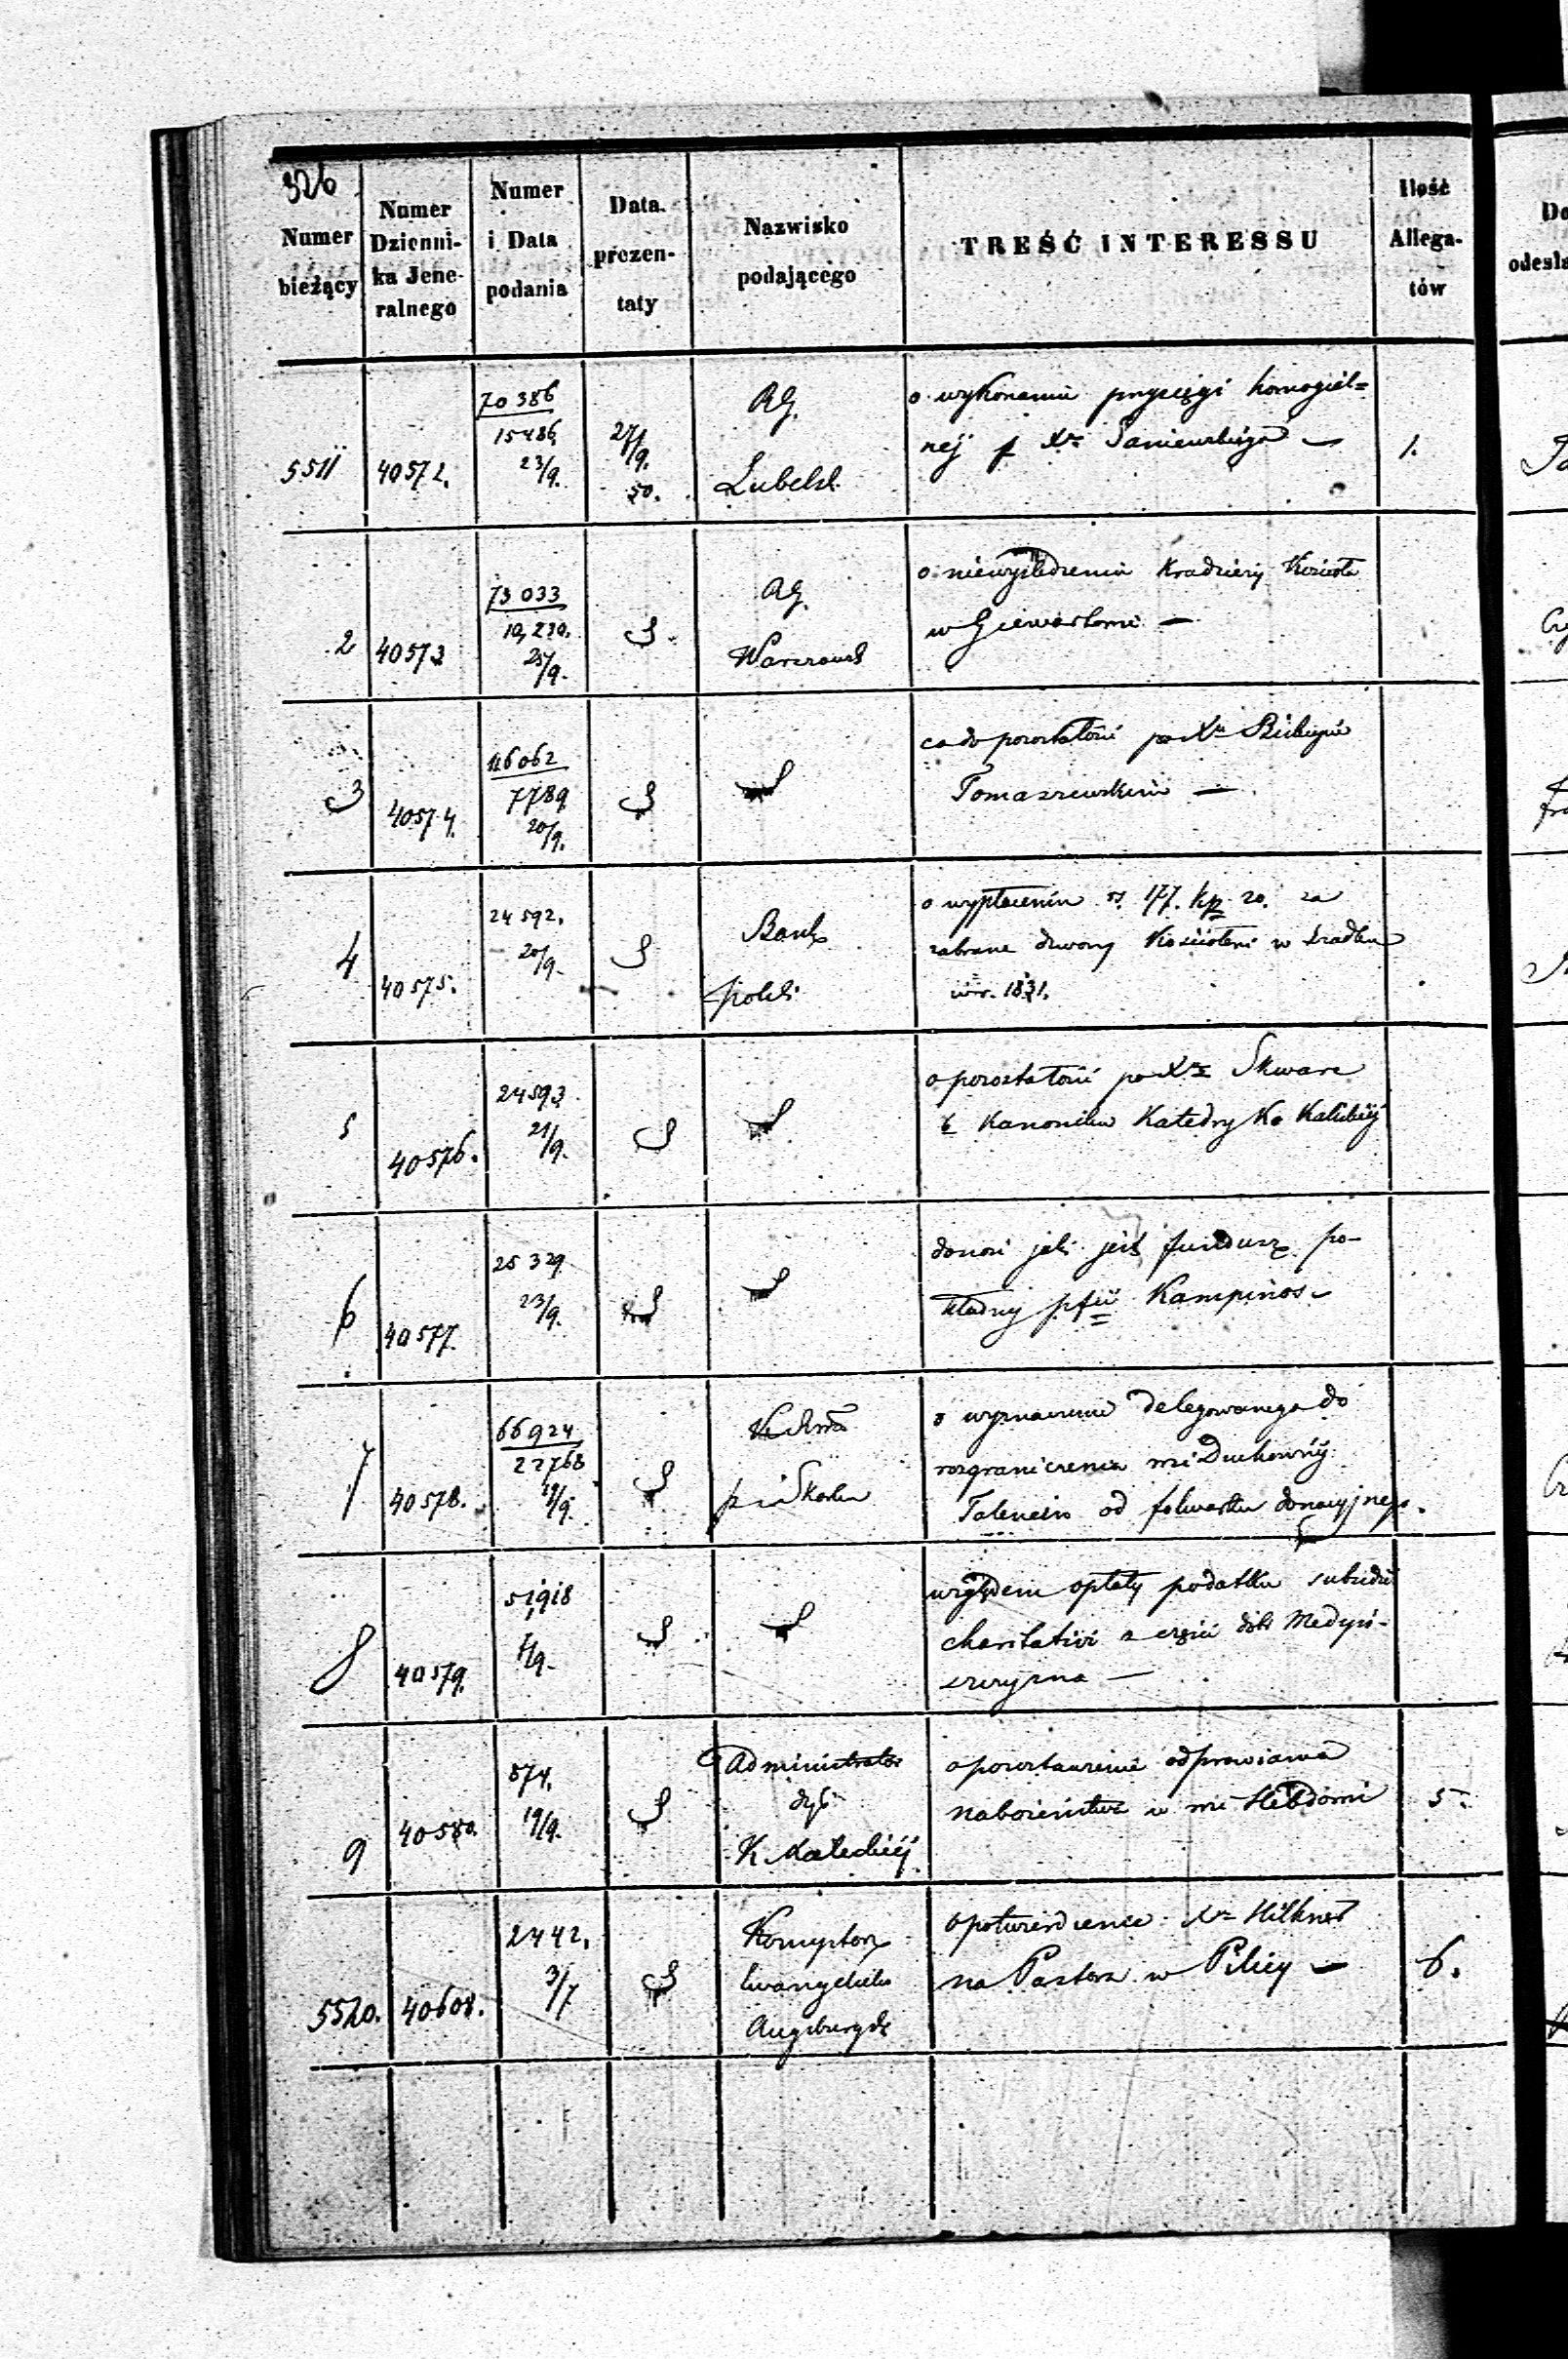 326
Numer bieżący
Numer Dzienni-ka Jene-ralnego
Numer i Data podania
Data prezen-taty
Nazwisko podającego
TREŚĆ INTERESSU
Ilość Allega-tów
5511 40572. 70386 15486 23/9. 27/9. 50. RG. Lubelsk.
o wykonaniu przysięgi homogial=
nej p Xa Saniewskiego —
1.
2 40573 73033 10,230. 25/9. RG. Warszawsk
o niewyśledzeniu kradzieży Kościoła
w —
3 40574. 46062 7789 20/9.
co do pozostałości po Xu Biskupie
Tomaszewskim —
4 40575. 24592. 20/9. Bank polski
o wypłaceniu rs. 177. kp. 20. za
zabrane dzwony Kościołowi w
w r. 1831.
5 40576. 24593 21/9.
o pozostałości po Xe Skwarc
b Kanoniku Katedry Ko Kaliskiej
6 40577. 25329 23/9.
donosi jaki jest fundusz po-
kładny pfii Kampinos
7 40578. 66924 22768 19/9.
o wyznaczenie Delegowanego do
rozgraniczenia wsi Duchownej
od folwarku donacyjnego.
8 40579. 51918 /9.
względem opłaty podatku subsidii
charitativi z części dóbr
9 40580. 574. 19/9. Administrator dyó K Kaleckiej
o powstanie odprawiania
nabożeństw w
5.
5520. 40608. 2442. 3/7 Konsystorz Ewangelicko Augsburgsk
o potwierdzenie Xa Hilkner
na Pastora w Pilicy —
6.